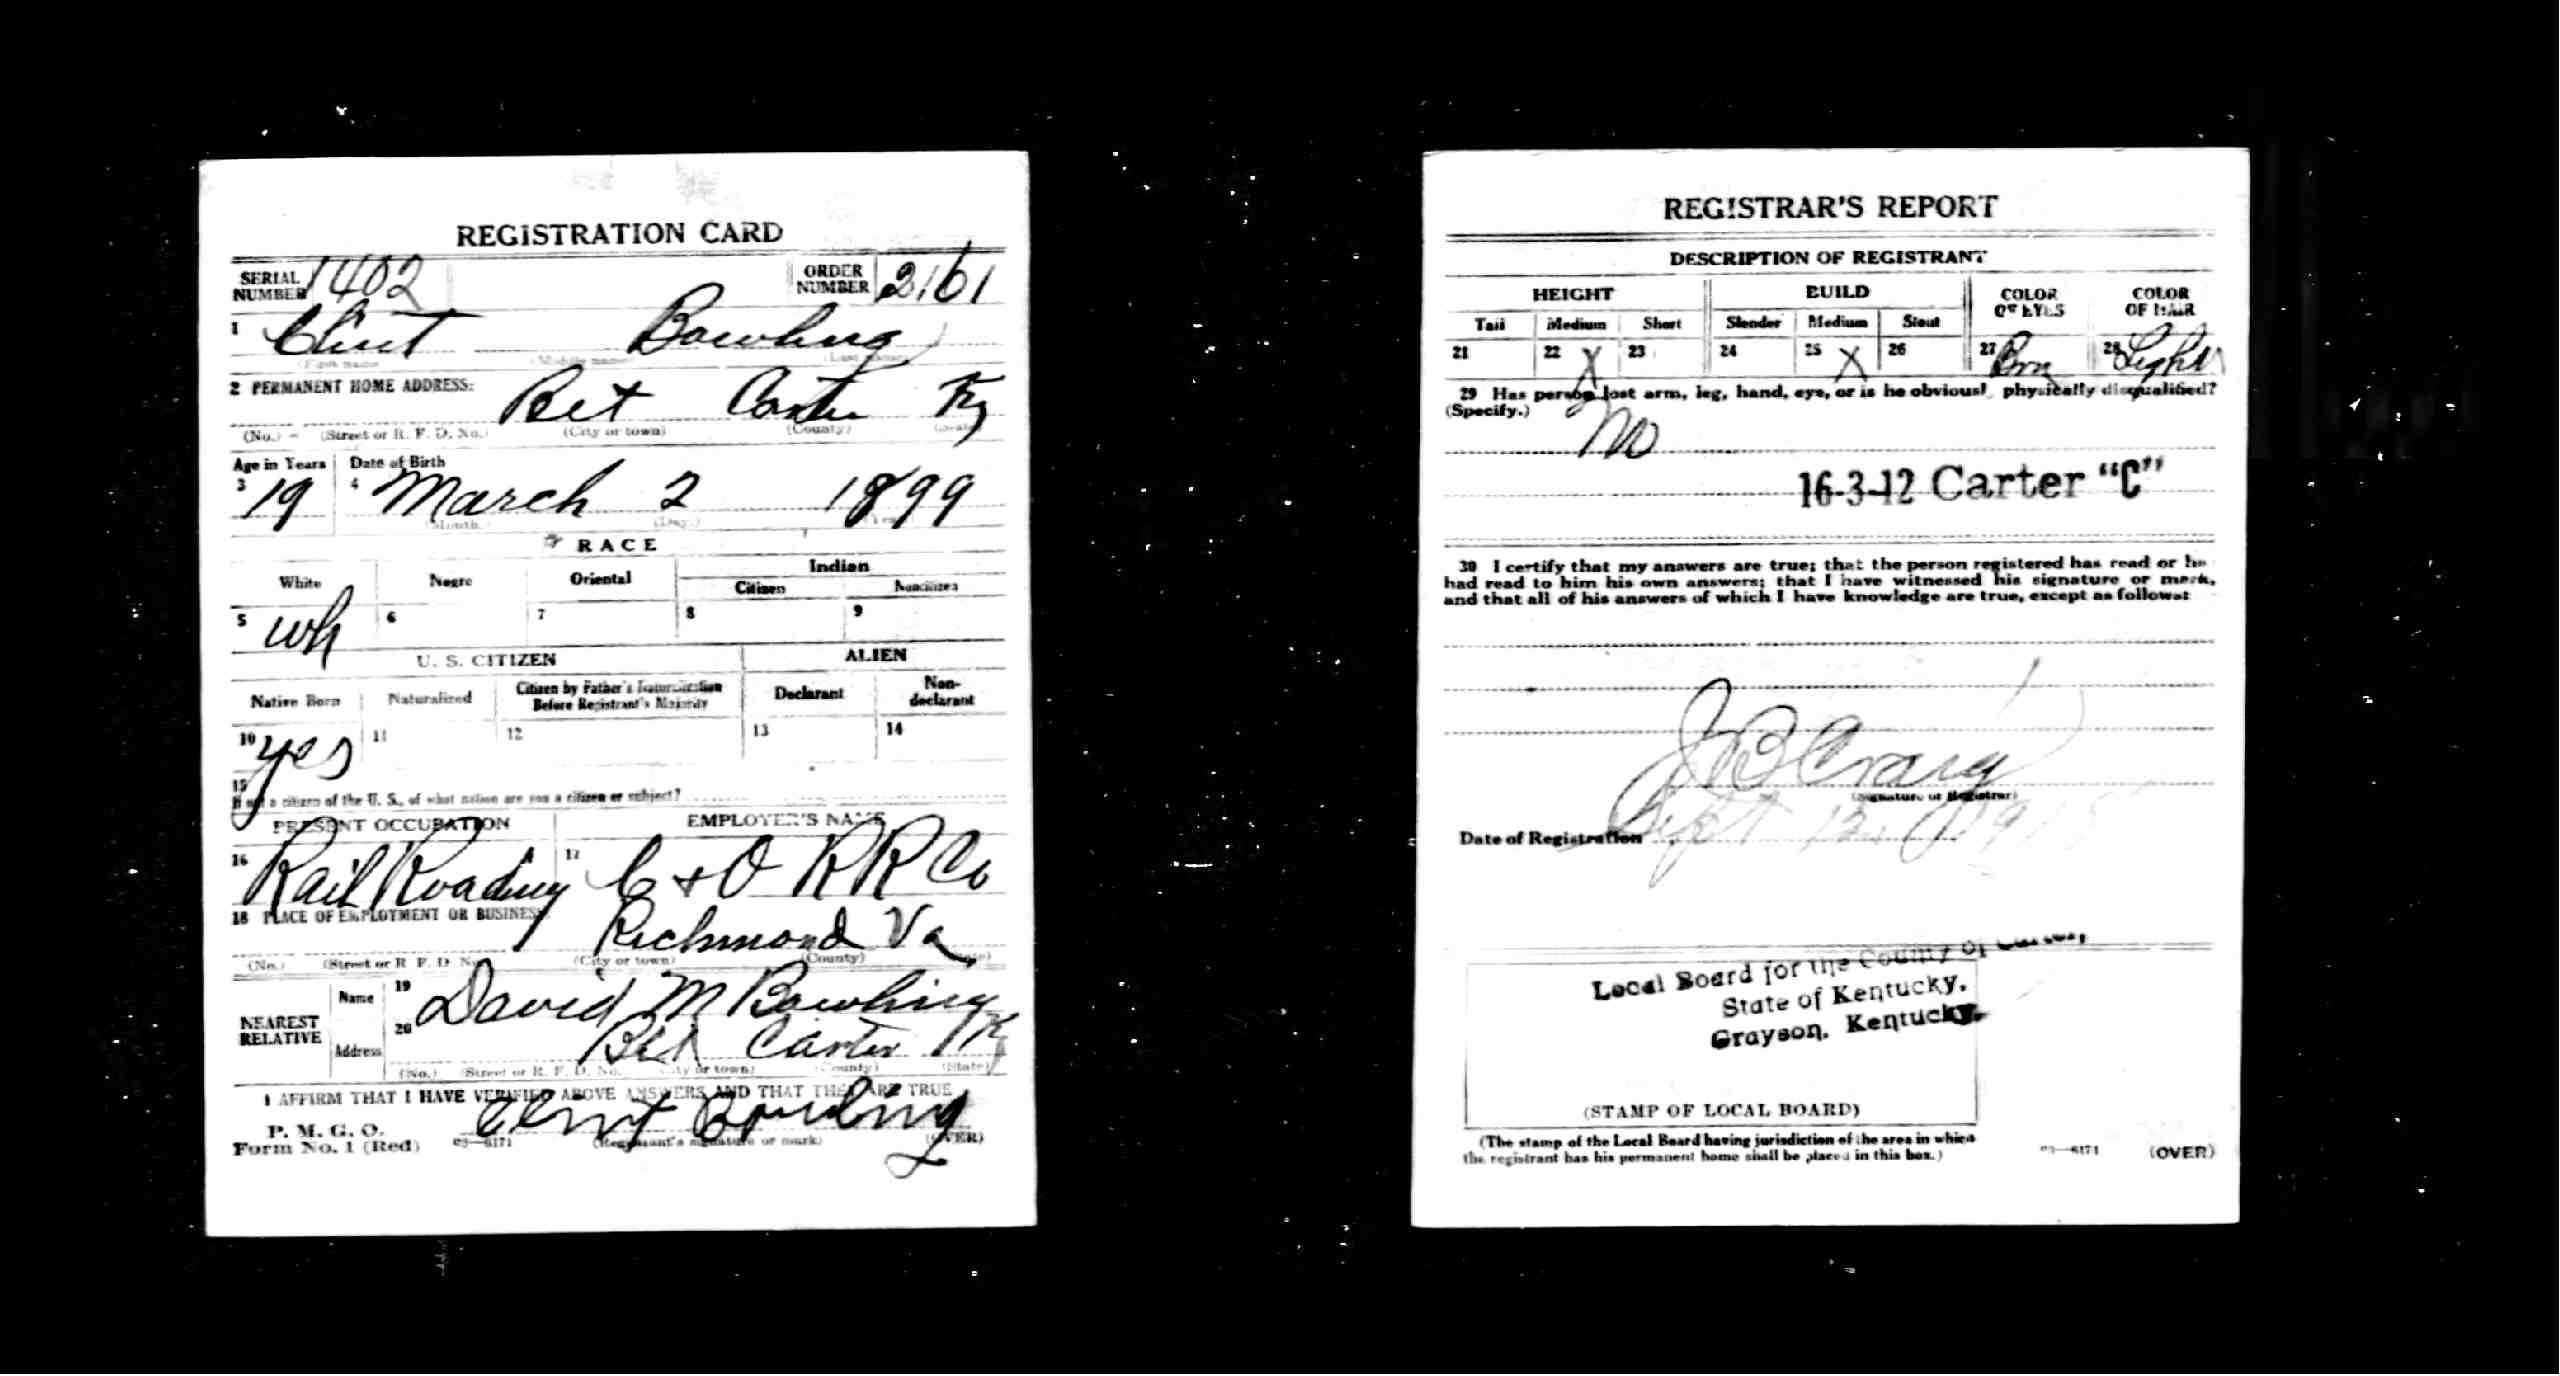 REGISTRATION CARD
SERIAL NUMBER 1402 ORDER NUMBER 2161
1 Clint Bowling
(First name) (Middle name) (Last name)
2 PERMANENT HOME ADDRESS:
Bet Carter Ky
(No.) (Street or R. F. D. No.) (City or town) (County) (State)
Age in Years Date of Birth
3 19 4 March 2 1899
(Month.) (Day.) (Year.)
RACE
White Negro Oriental Indian
Citizen Noncitizen
5 wh 6 7 8 9
U. S. CITIZEN ALIEN
Native Born Naturalized Citizen by Father's Naturalization Before Registrant's Majority Declarant Non-declarant
10 yes 11 12 13 14
15
If not a citizen of the U. S., of what nation are you a citizen or subject?
PRESENT OCCUPATION EMPLOYER'S NAME
16 Rail Roading 17 C + O R R Co
18 PLACE OF EMPLOYMENT OR BUSINESS:
Richmond Va
(No.) (Street or R. F. D. No.) (City or town) (County) (State)
NEAREST RELATIVE
Name 19 David M Bowling
Address 20 Bet Carter Ky
(No.) (Street or R. F. D. No.) (City or town) (County) (State)
I AFFIRM THAT I HAVE VERIFIED ABOVE ANSWERS AND THAT THEY ARE TRUE
Clint Bowling
P. M. G. O.
Form No. 1 (Red) 03—6171 (Registrant's signature or mark) (OVER)
REGISTRAR'S REPORT
DESCRIPTION OF REGISTRANT
HEIGHT BUILD COLOR OF EYES COLOR OF HAIR
Tall Medium Short Slender Medium Stout
21 22 X 23 24 25 X 26 27 Brn 28 Light
29 Has person lost arm, leg, hand, eye, or is he obviously physically disqualified?
(Specify.)
No
16-3-12 Carter "C"
30 I certify that my answers are true; that the person registered has read or has
had read to him his own answers; that I have witnessed his signature or mark,
and that all of his answers of which I have knowledge are true, except as follows:
J B Craig
(Signature of Registrar)
Date of Registration Sept 12, 1918
Local Board for the County of Carter,
State of Kentucky,
Grayson, Kentucky.
(STAMP OF LOCAL BOARD)
(The stamp of the Local Board having jurisdiction of the area in which
the registrant has his permanent home shall be placed in this box.)
03—6171 (OVER)